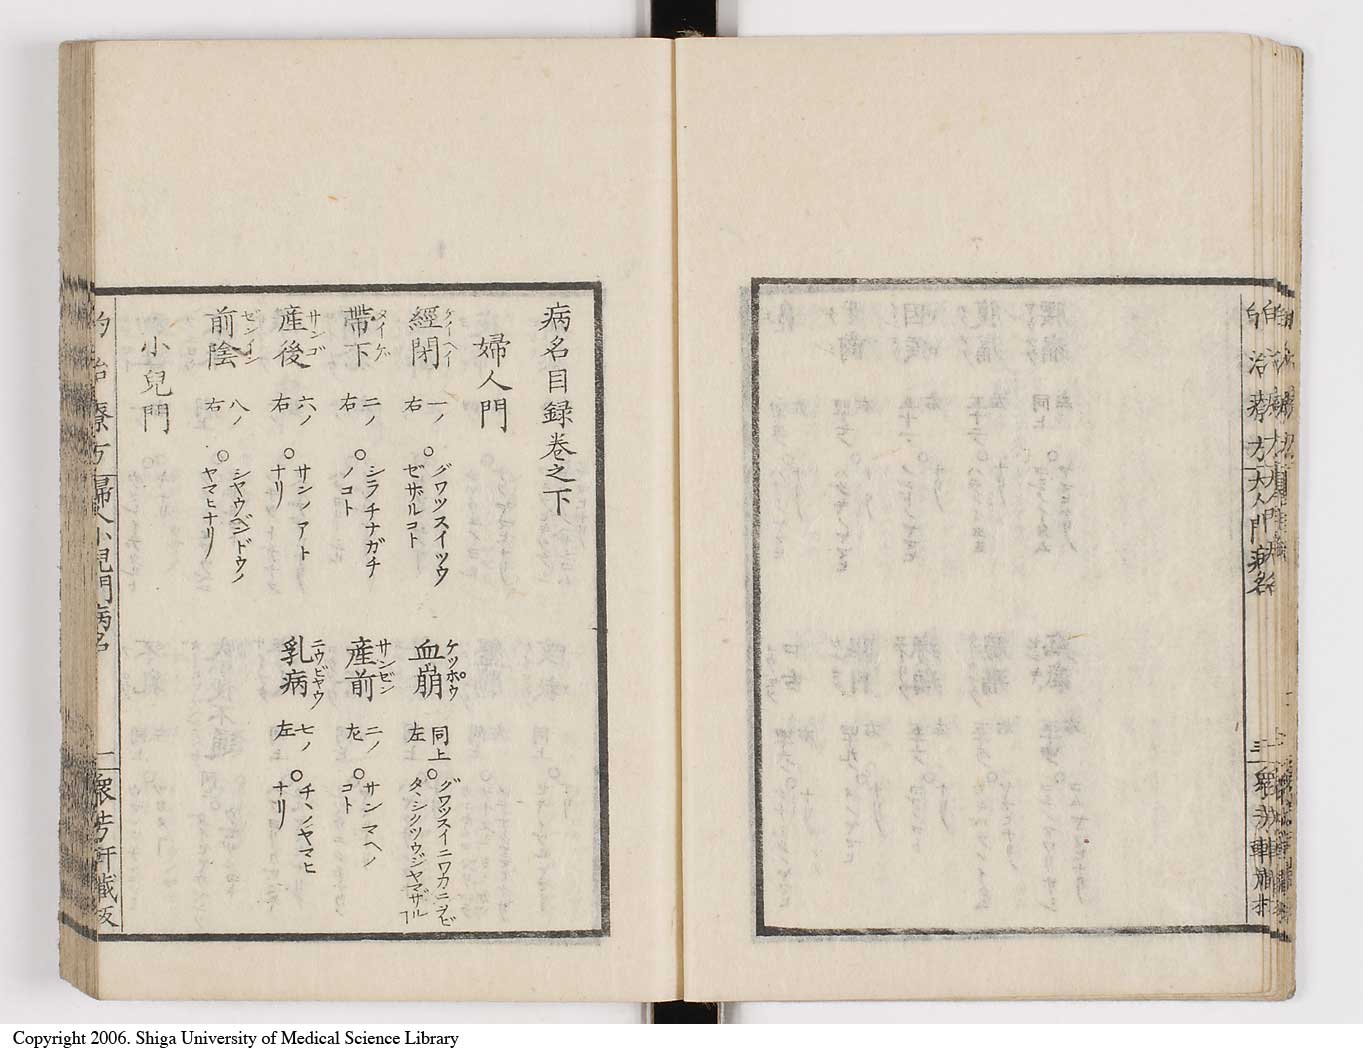 病名目録卷之下
婦人門
經閉 ケイヘイ 一ノ右 ○グワツスイツウゼザルコト
血崩 ケツポウ 同上左 ○グワツスイニワカニヲビタヾシクツウジヤマザルコト
帶下 タイゲ 二ノ右 ○シラチナガチノコト
産前 サンゼン 二ノ左 ○サンマヘノコト
産後 サンゴ 六ノ右 ○サンノアトナリ
乳病 ニウビヤウ 七ノ左 ○チヽノヤマヒナリ
前陰 ゼンイン 八ノ右 ○シヤウベンドウノヤマヒナリ
小兒門
治療方 婦人小兒門病名 一 衆芳軒藏板
Copyright 2006. Shiga University of Medical Science Library